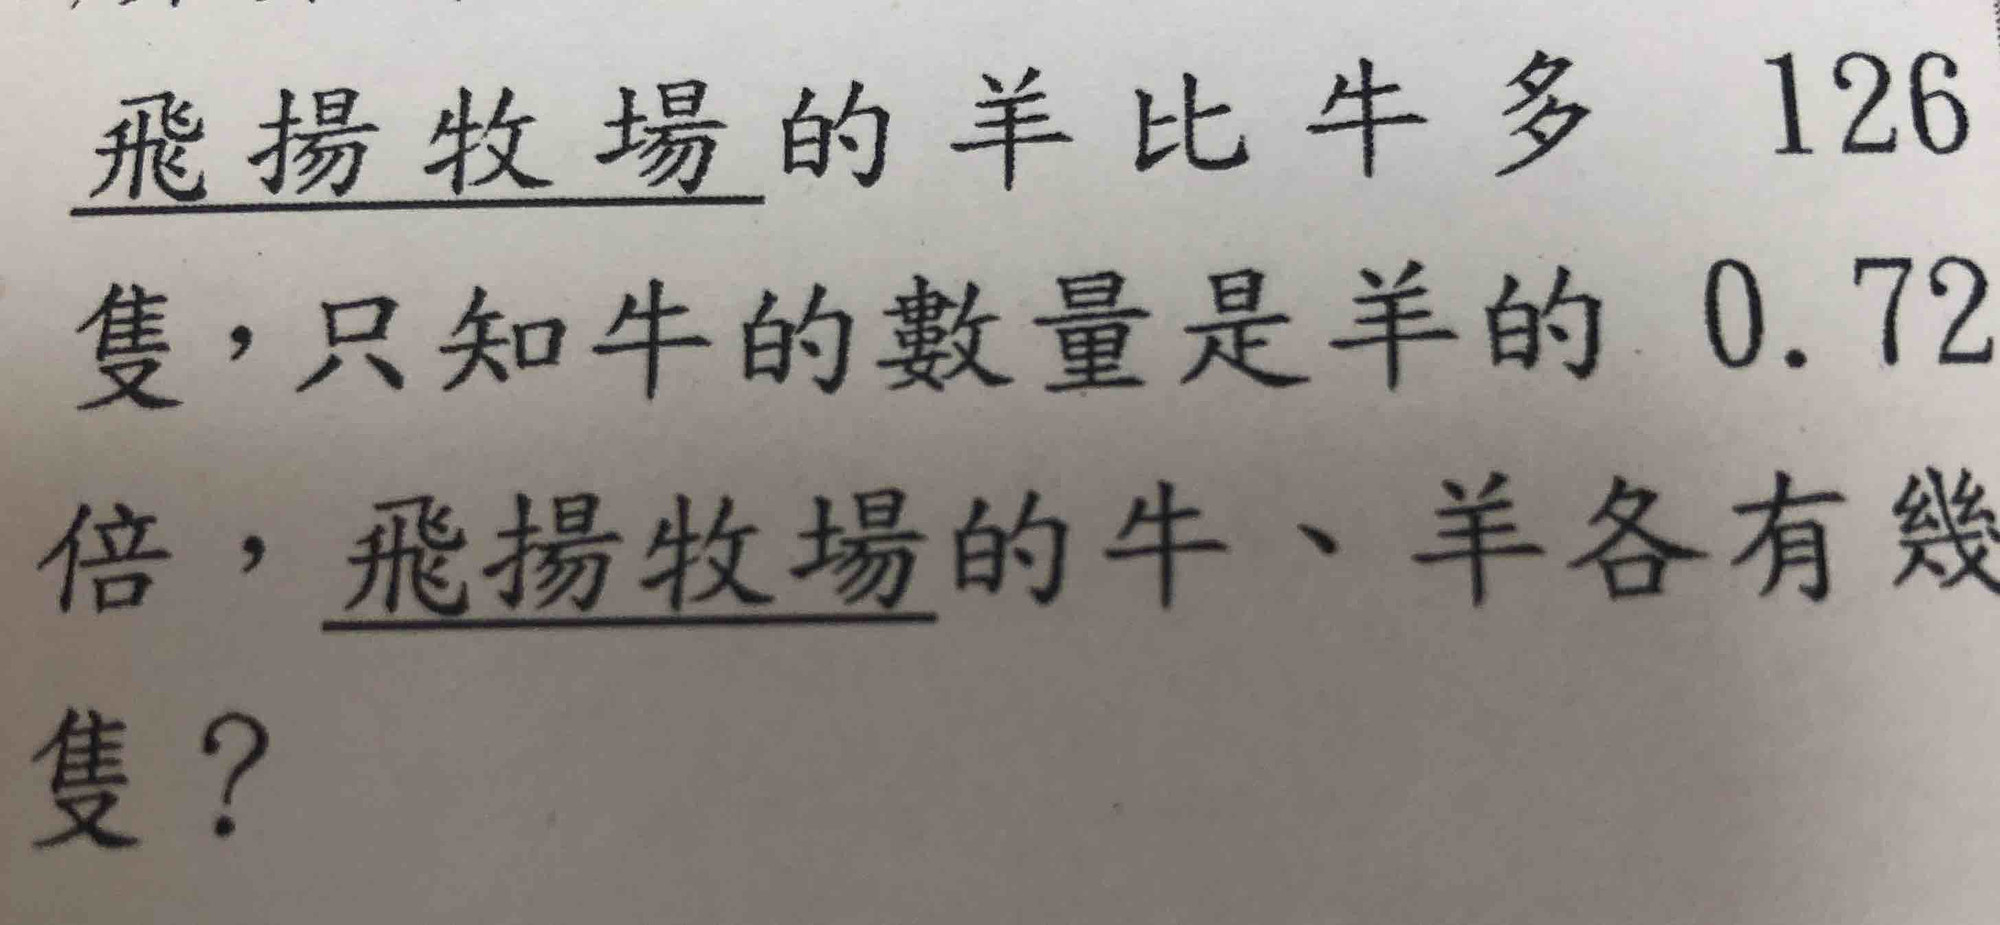 飛揚牧場的羊比牛多 126
隻，只知牛的數量是羊的 0.72
倍，飛揚牧場的牛、羊各有幾
隻？